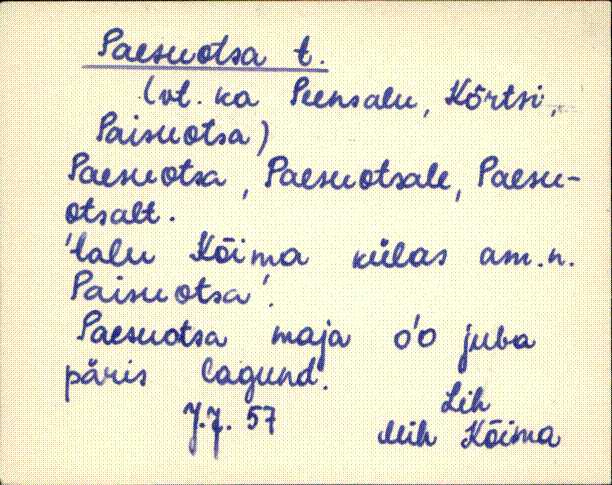 Paesuotsa t.
(vt. ka Peensalu, Kõrtsi,
Paisuotsa)
Paesuotsa, Paesuotsale, Paesu-
otsalt.
'talu Kõima külas am.n.
Paisuotsa'.
Paesuotsa maja o'o juba
päris lagund.
Lih
J.J. 57
Mih Kõima